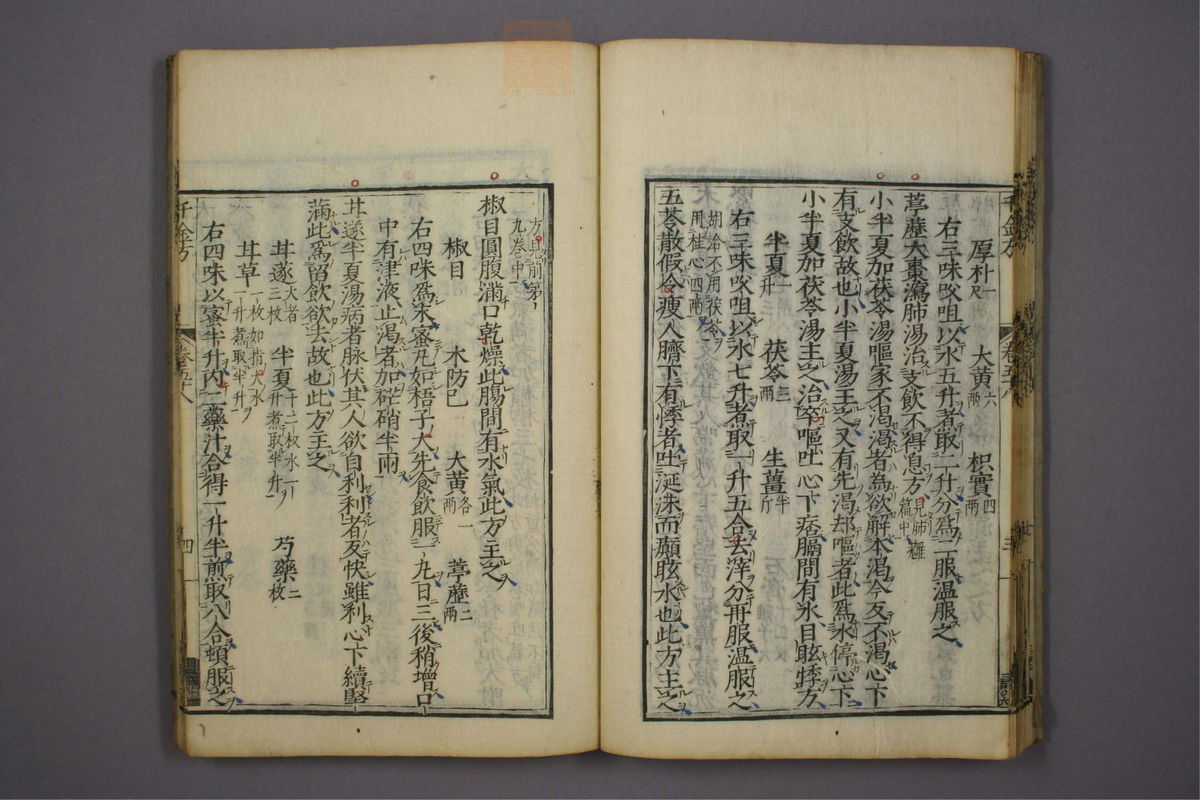 千金方
卷五十八
三
厚朴一尺 大黃六兩 枳實四兩
右三味㕮咀以水五升煮取二升分爲二服温服之
葶藶大棗瀉肺湯治支飲不得息方見肺癰篇中
小半夏加茯苓湯嘔家不渴渴者為欲解本渴今反不渴心下
有支飲故也小半夏湯主之又有先渴却嘔者此爲水停心下
小半夏加茯苓湯主之治卒嘔吐心下痞膈間有水目眩悸方
半夏一升 茯苓三兩 生薑半斤
右三味㕮咀以水七升煮取一升五合去滓分再服温服之
胡洽不用茯苓用桂心四兩
五苓散假令瘦人臍下有悸者吐涎沫而顛眩水也此方主之
方見前第九卷中
椒目圓腹滿口乾燥此腸間有水氣此方主之
椒目 木防己 大黃各一兩 葶藶二兩
右四味爲末蜜丸如梧子大先食飲服一丸日三後稍增口
中有津液止渴者加芒硝半兩
甘遂半夏湯病者脉伏其人欲自利利者反快雖利心下續堅
滿此爲留飲欲去故也此方主之
甘遂大者三枚 半夏十二枚水一升煮取半升 芍藥一枚
甘草一枚如指大水一升煮取半升
右四味以蜜半升内二藥汁合得一升半煎取八合頓服之
千金方
卷五十八
四